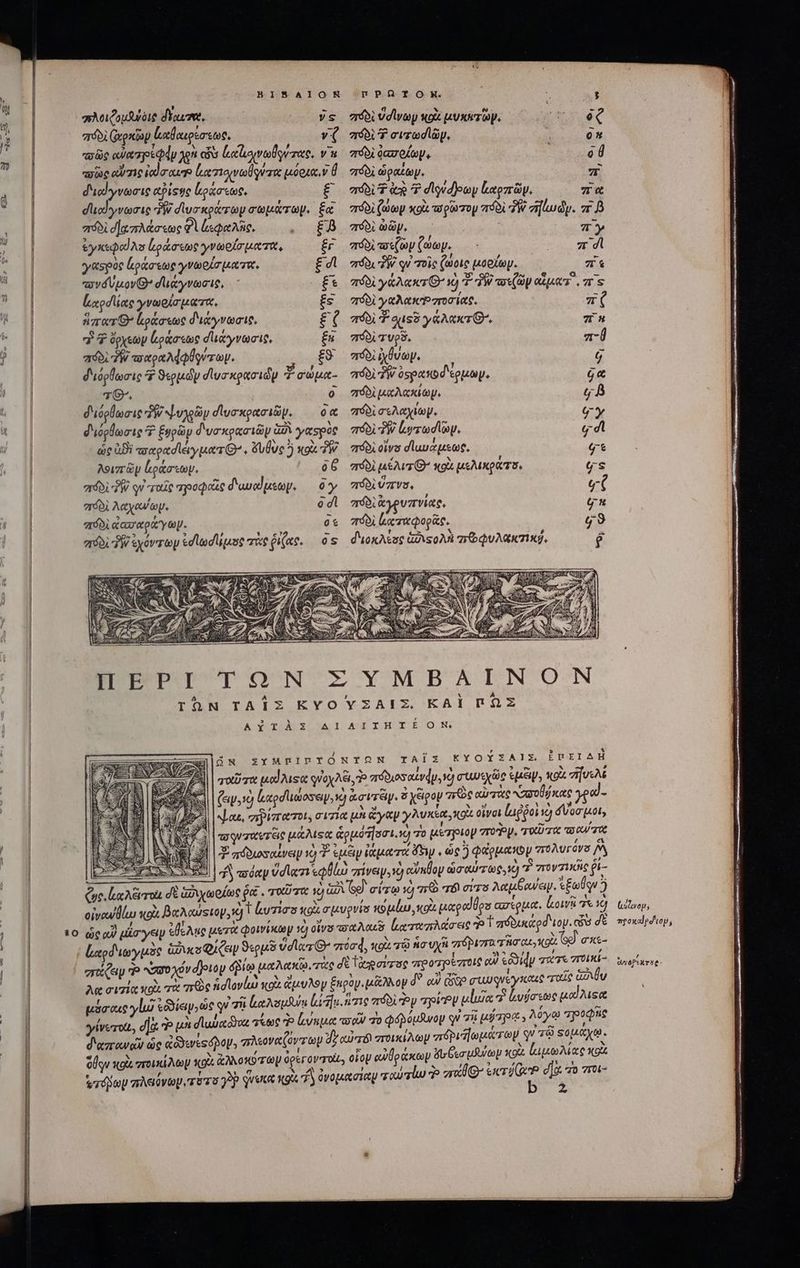 ΒΙΒΛΙΟΝ ΠΡΩΤΟΝ.
πλοιζομένοις δίαιτα. νς
περὶ καθαιρέσεως. νζ
πῶς ἀνατρέφειν χρὴ τοὺς κατισχνωθέντας. νη
μόρια. νθ
διάγνωσις ἀρίστης κράσεως. ξ
διάγνωσις τῶν δυσκράτων σωμάτων. ξα
περὶ διαπλάσεως τῆς κεφαλῆς. ξβ
ἐγκεφάλου κράσεως γνωρίσματα. ξγ
γαστρὸς κράσεως γνωρίσματα. ξδ
πνεύμονος διάγνωσις. ξε
καρδίας γνωρίσματα. ξς
ἥπατος κράσεως διάγνωσις. ξζ
τῆς τῶν ὄρχεων κράσεως διάγνωσις. ξη
περὶ τῶν παραλειφθέντων. ξθ
διόρθωσις τῶν θερμῶν δυσκρασιῶν τοῦ σώμα-
τος. ο
διόρθωσις τῶν ψυχρῶν δυσκρασιῶν. οα
διόρθωσις τῶν ξηρῶν δυσκρασιῶν ἐπὶ γαστρὸς
ὡς ἐπὶ παραδείγματος, εὐθὺς δὲ καὶ τῶν
λοιπῶν κράσεων. οβ
περὶ τῶν ἐν ταῖς τροφαῖς δυνάμεων. ογ
περὶ λαχάνων. οδ
περὶ ἀσπαράγων. οε
περὶ τῶν ἐχόντων ἐδωδίμους τὰς ῥίζας. ος
περὶ ὕδνων καὶ μυκήτων. οζ
περὶ τῶν σιτωδῶν. οη
περὶ ὀσπρίων. οθ
περὶ ὡραίων. π
περὶ τῶν ἀπὸ τῶν δένδρων καρπῶν. πα
περὶ ζώων καὶ πρῶτον περὶ τῶν πτηνῶν. πβ
περὶ ὠῶν. πγ
περὶ πεζῶν ζώων. πδ
περὶ τῶν ἐν τοῖς ζώοις μορίων. πε
περὶ γάλακτος καὶ τοῦ τῶν πεζῶν αἵματος. πς
περὶ γαλακτοποσίας. πζ
περὶ τοῦ σχιστοῦ γάλακτος. πη
περὶ τυροῦ. πθ
περὶ ἰχθύων. ϟ
περὶ τῶν ὀστρακοδέρμων. ϟα
περὶ μαλακίων. ϟβ
περὶ σελαχίων. ϟγ
περὶ τῶν κητωδῶν. ϟδ
περὶ οἴνου δυνάμεως. ϟε
περὶ μέλιτος καὶ μελικράτου. ϟς
περὶ ὕπνου. ϟζ
περὶ ἀγρυπνίας. ϟη
περὶ καταφορᾶς. ϟθ
διοκλέους ἐπιστολὴ προφυλακτική. ρ
ΠΕΡΙ ΤΩΝ ΣΥΜΒΑΙΝΟΝ
ΤΩΝ ΤΑΙΣ ΚΥΟΥΣΑΙΣ, ΚΑΙ ΠΩΣ
ΑΥΤΑΣ ΔΙΑΙΤΗΤΕΟΝ.
ΩΝ ΣΥΜΠΙΠΤΟΝΤΩΝ ΤΑΙΣ ΚΥΟΥΣΑΙΣ, ΕΠΕΙΔΗ
ταῦτα μάλιστα ἐνοχλεῖ, τὸ καὶ συνεχῶς ἐμεῖν, καὶ πτυελί
ζειν, καὶ καρδιώσσειν, καὶ ἀσιτεῖν, οὐ χεῖρον πρὸς αὐτὰς ὑποθήκας γρά-
ψαι, περίπατοι, σιτία μὴ ἄγαν γλυκέα, καὶ οἶνοι κιρροὶ καὶ εὔοσμοι,
πενταετεῖς μάλιστα ἁρμόττουσι, καὶ τὸ μέτριον ποτόν, ταῦτα πάντα
τοῦ καὶ τοῦ ἐμεῖν ἰάματα ὡς δὲ φάρμακον πολύγονον
πόαν ὕδατι ἑφθὴν πίνειν, καὶ ἄνηθον ὡσαύτως, καὶ τῆς ποντικῆς ῥί-
ζης. καλεῖται δὲ ἐπιχωρίως ῥᾶ. ταῦτα καὶ ἐπὶ τῷ σίτῳ καὶ πρὸ τοῦ σίτου λαμβάνειν. ἔξωθεν δὲ
οἰνάνθην καὶ βαλαύστιον, καὶ κυτίσου καὶ σμυρνίου κόμην, καὶ μαράθρου σπέρμα. κοινῇ τε καὶ
ὡς ἂν μίσγειν ἐθέλῃς μετὰ φοινίκων καὶ οἴνου παλαιοῦ τοὺς δὲ
καρδιωγμοὺς θερμοῦ ὕδατος πόσει, καὶ τῷ ἡσυχῇ
ὑποχόνδριον ἐρίῳ μαλακῷ. τὰς δὲ ἀποσίτους προτρέπειν ἐσθίειν τά τε ποικί-
λα σιτία καὶ τὰ πρὸς ἡδονὴν καὶ ἄμυλον ξηρόν. μᾶλλον δ'
γῆν ἐσθίειν, ὡς ἐν τῇ ἥτις περὶ τὸν τρίτον μῆνα τῆς κυήσεως μάλιστα
γίνεται, διὰ τὸ μὴ δύνασθαι τέως τὸ κύημα πᾶν τὸ φερόμενον ἐν τῇ μήτρᾳ, λόγῳ τροφῆς
δαπανᾶν ὡς ἀσθενέστερον, πλεονάζοντων ποικίλων περιττωμάτων ἐν τῷ στομάχῳ.
ὅθεν καὶ ποικίλων καὶ ἀλλοκότων ὀρέγονται, οἷον ἀνθράκων ἐσβεσμένων καὶ κιμωλίας καὶ
ἑτέρων πλειόνων, τούτου γὰρ ἕνεκα καὶ τὴν ὀνομασίαν ταύτην τὸ πάθος διὰ τὸ ποι-
b 2
10